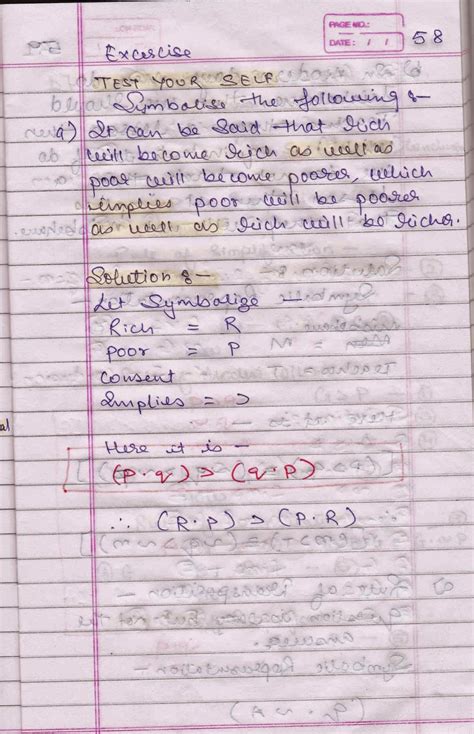 PAGE NO.:
DATE: / /
58
Excercise
TEST YOUR SELF
Symbolise the following :-
a) It can be said that rich
will become rich as well as
poor will become poorer, which
implies poor will be poorer
as well as rich will be richer.
Solution :-
Let Symbolize -
Rich = R
poor = P
consent
Implies = ⊃
Here it is -
(P . q) ⊃ (q . P)
∴ (R . P) ⊃ (P . R)